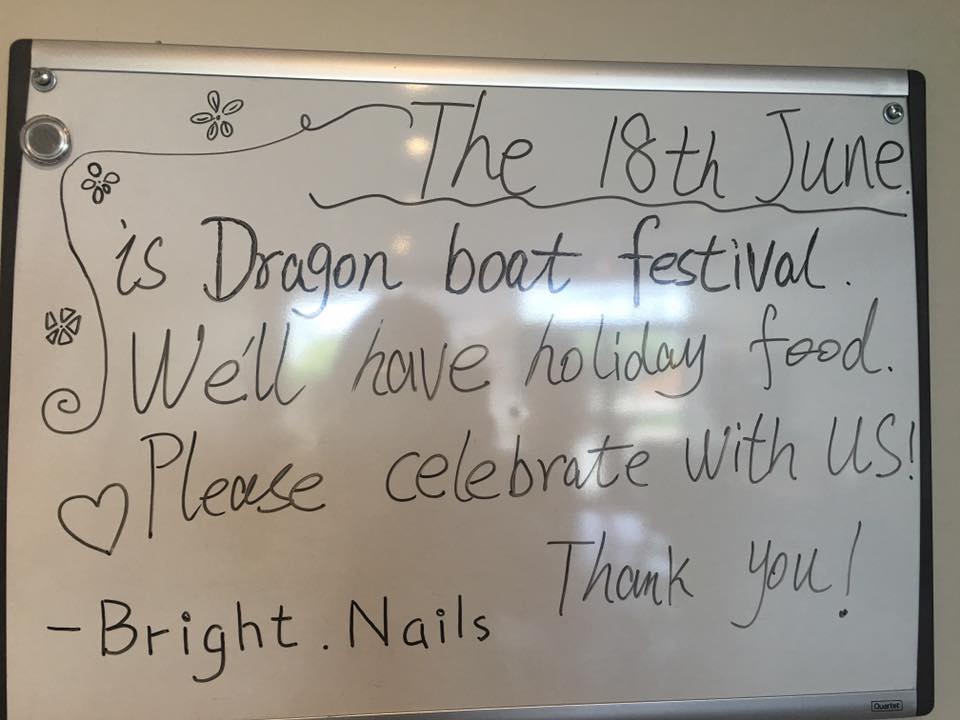 The 18th June.
is Dragon boat festival.
We'll have holiday food.
Please celebrate with US!
Thank you!
- Bright. Nails
Quartet